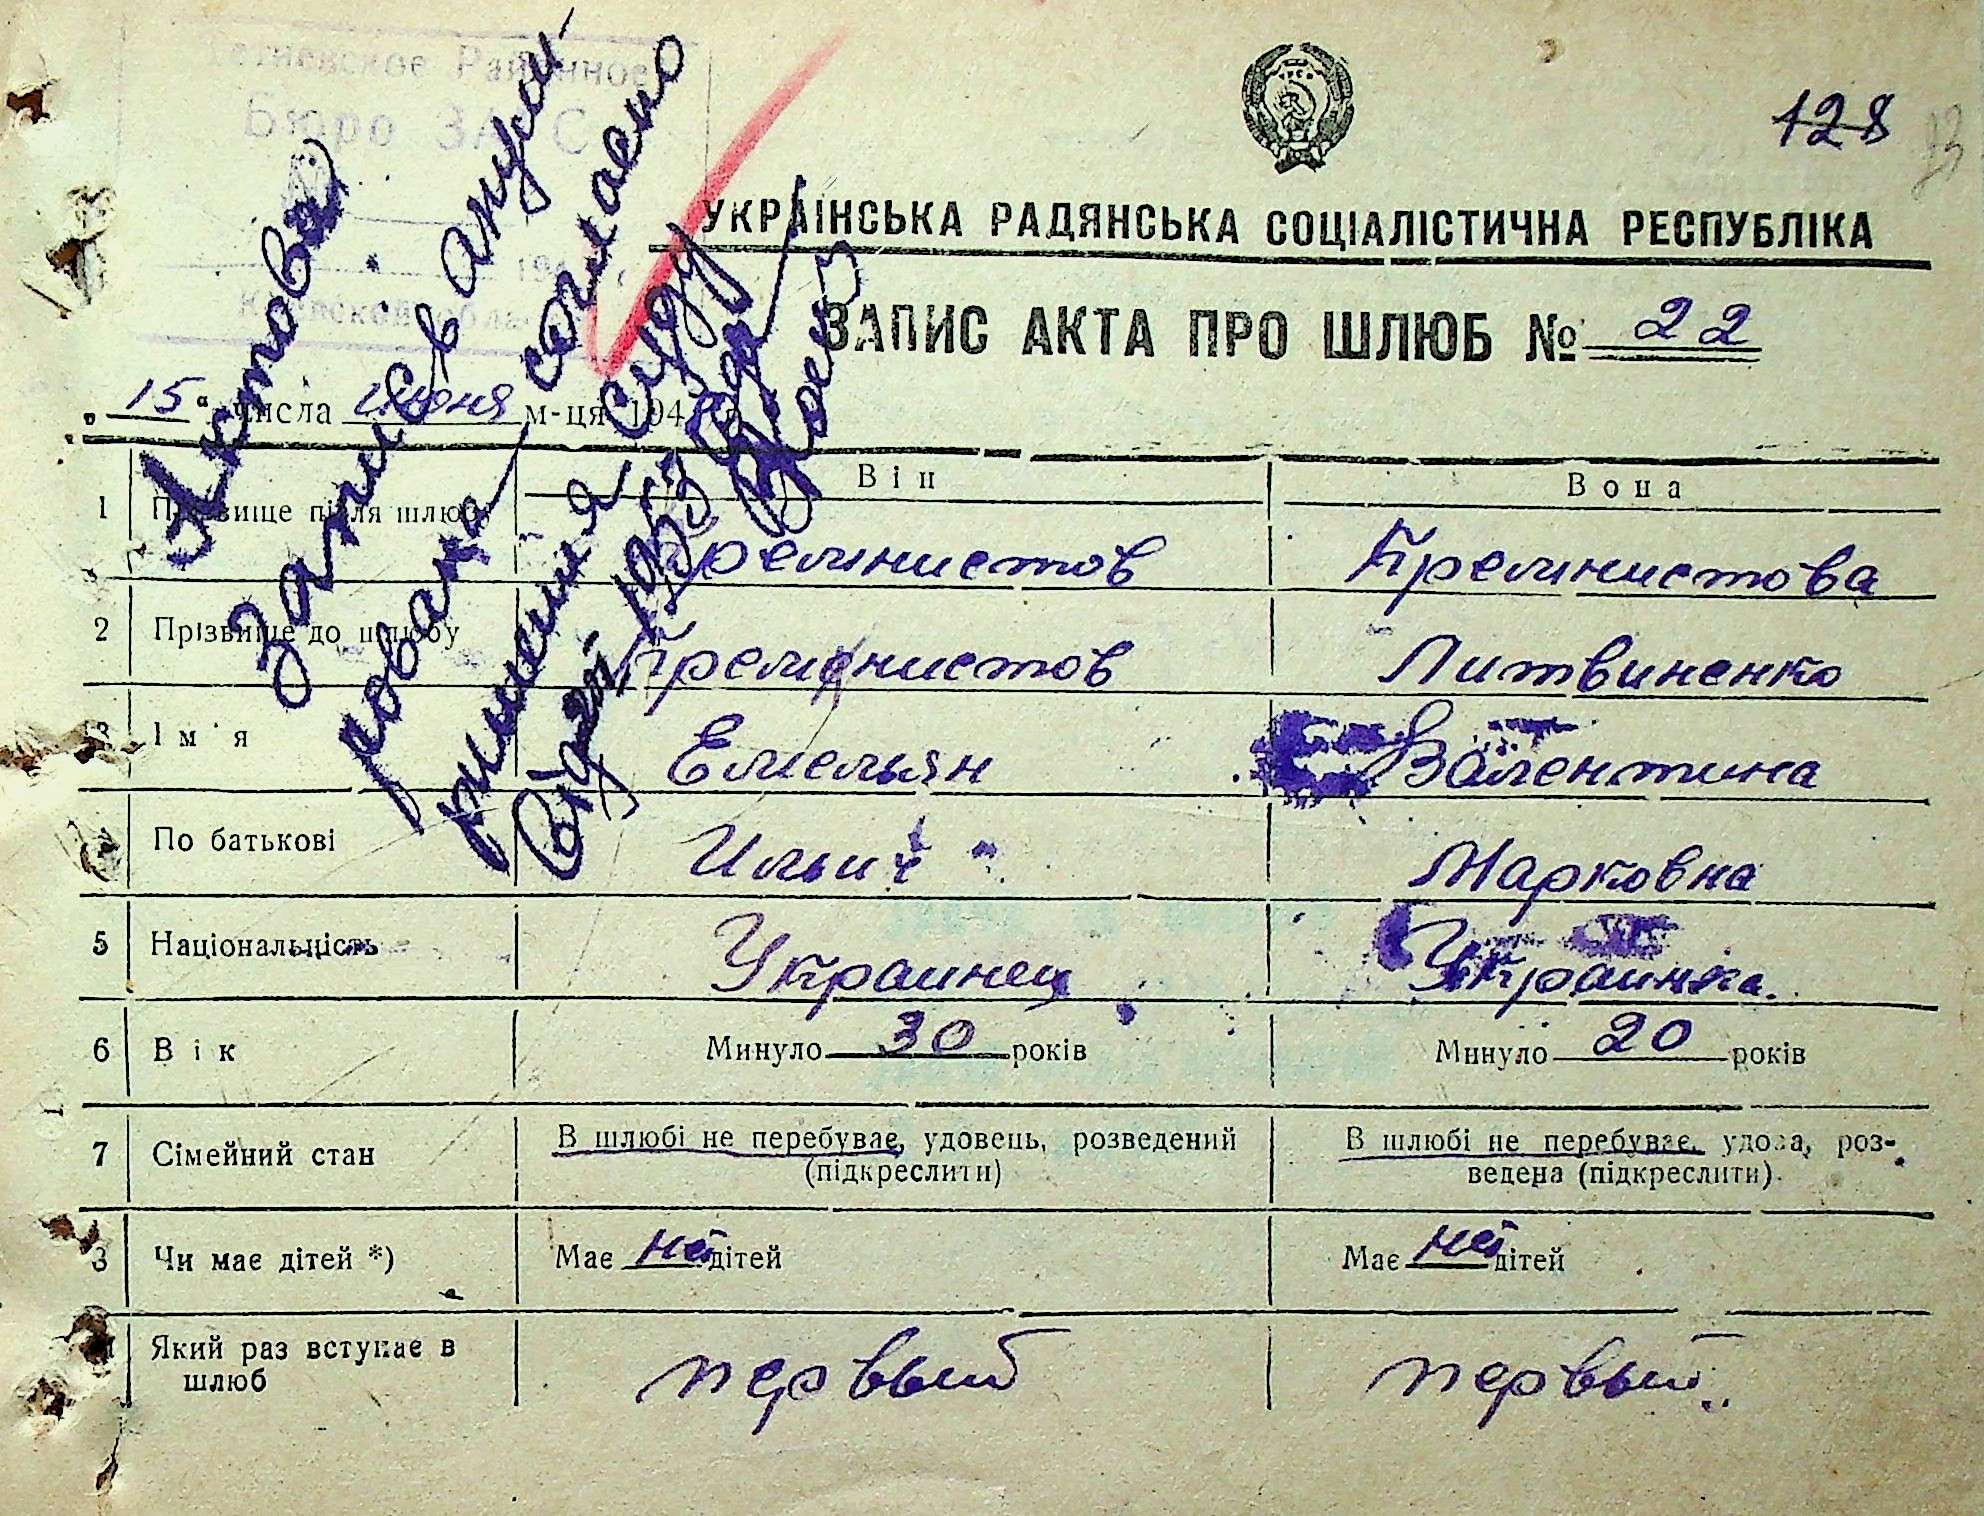 Районное
Бюро ЗАГС
128
УКРАЇНСЬКА РАДЯНСЬКА СОЦІАЛІСТИЧНА РЕСПУБЛІКА
ЗАПИС АКТА ПРО ШЛЮБ № 22
„15“ числа июня м-ця 194 р.
Актовая
запись анули-
рована согласно
рішення суду
від 1953 года
Він Вона
1 Прізвище після шлюбу Кремнистов Кремнистова
2 Прізвище до шлюбу Кремнистов Литвиненко
3 Ім'я Емельян Валентина
По батькові Ильич Марковна
5 Національність Украинец Украинка.
6 Вік Минуло 30 років Минуло 20 років
7 Сімейний стан В шлюбі не перебуває, удовець, розведений (підкреслити) В шлюбі не перебуває, удова, роз-
ведена (підкреслити)
8 Чи має дітей *) Має не дітей Має не дітей
Який раз вступає в
шлюб первый первый